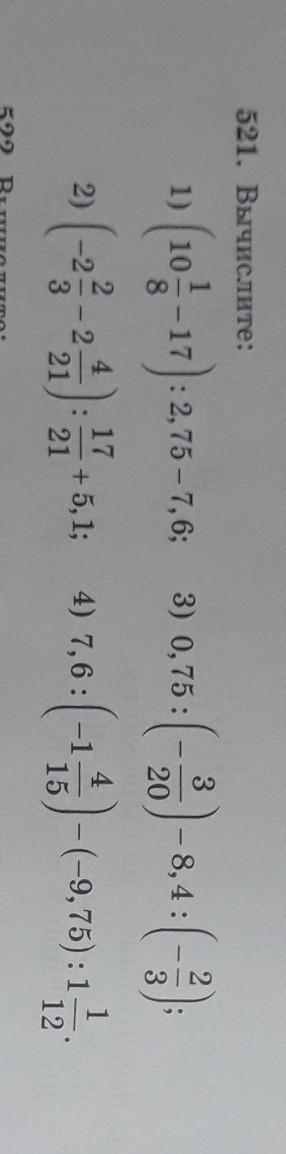 521. Вычислите:
1) (10 1/8 − 17) : 2,75 − 7,6; 3) 0,75 : (−3/20) − 8,4 : (−2/3);
2) (−2 2/3 − 2 4/21) : 17/21 + 5,1; 4) 7,6 : (−1 4/15) − (−9,75) : 1 1/12.
522. Вычислите: